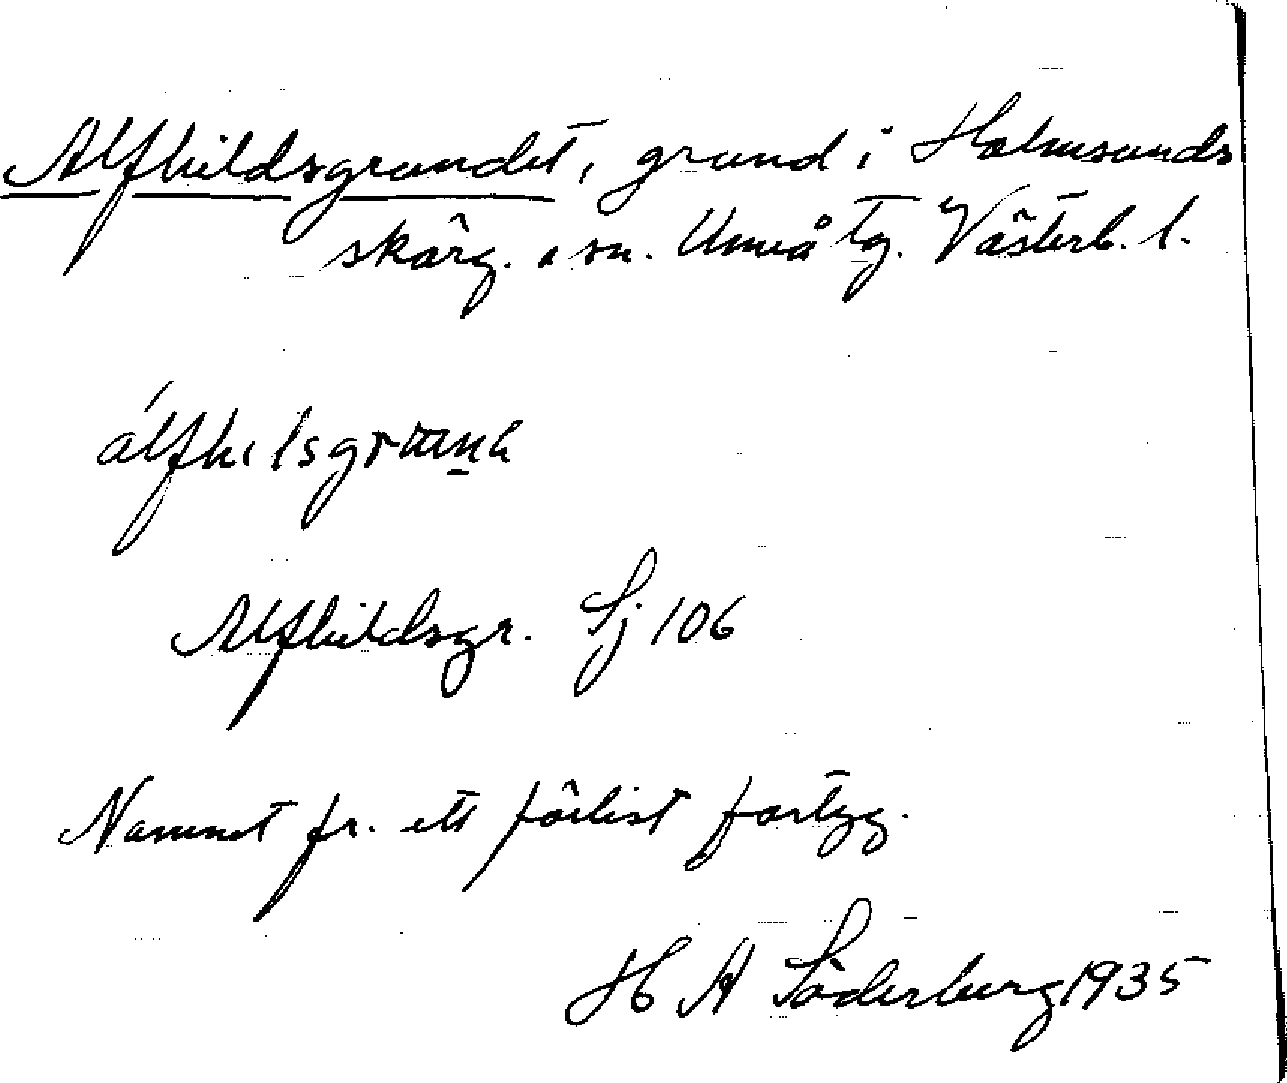 Alfhildsgrundet, grund i Holmsunds
skärg. o sn. Umeå tg. Västerb. l.
Alfhildsgr. Sj 106
Namnet fr. ett förlist fartyg.
H A Söderberg 1935